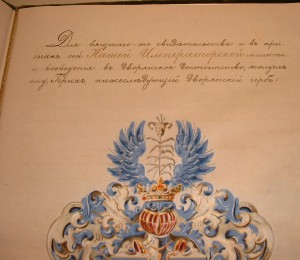 Для вящшаго-же свидѣтельства и въ приз-
знакъ сей Нашей Императорской милости
и возведенія въ Дворянское Достоинство, жалуемъ
ему, нижеслѣдующій Дворянскій гербъ: